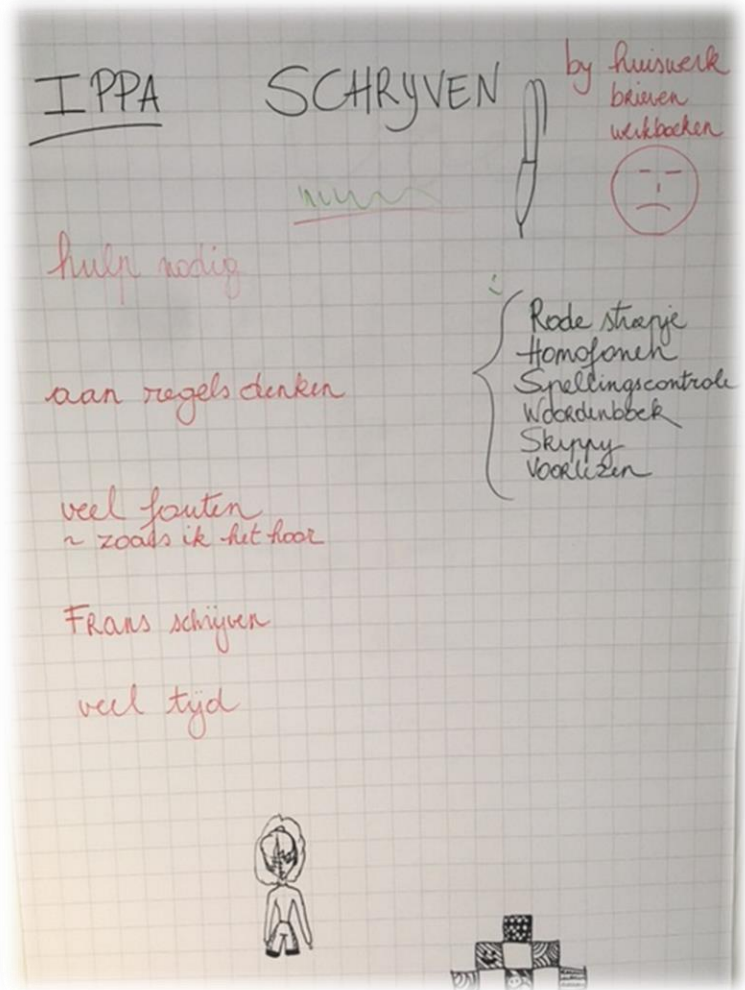 IPPA SCHRYVEN
by huiswerk
brieven
werkboeken
hulp nodig
aan regels denken
veel fouten
~ zoals ik het hoor
Frans schrijven
veel tijd
Rode streepje
Homofonen
Spellingscontrole
Woordenboek
Skippy
Voorlezen